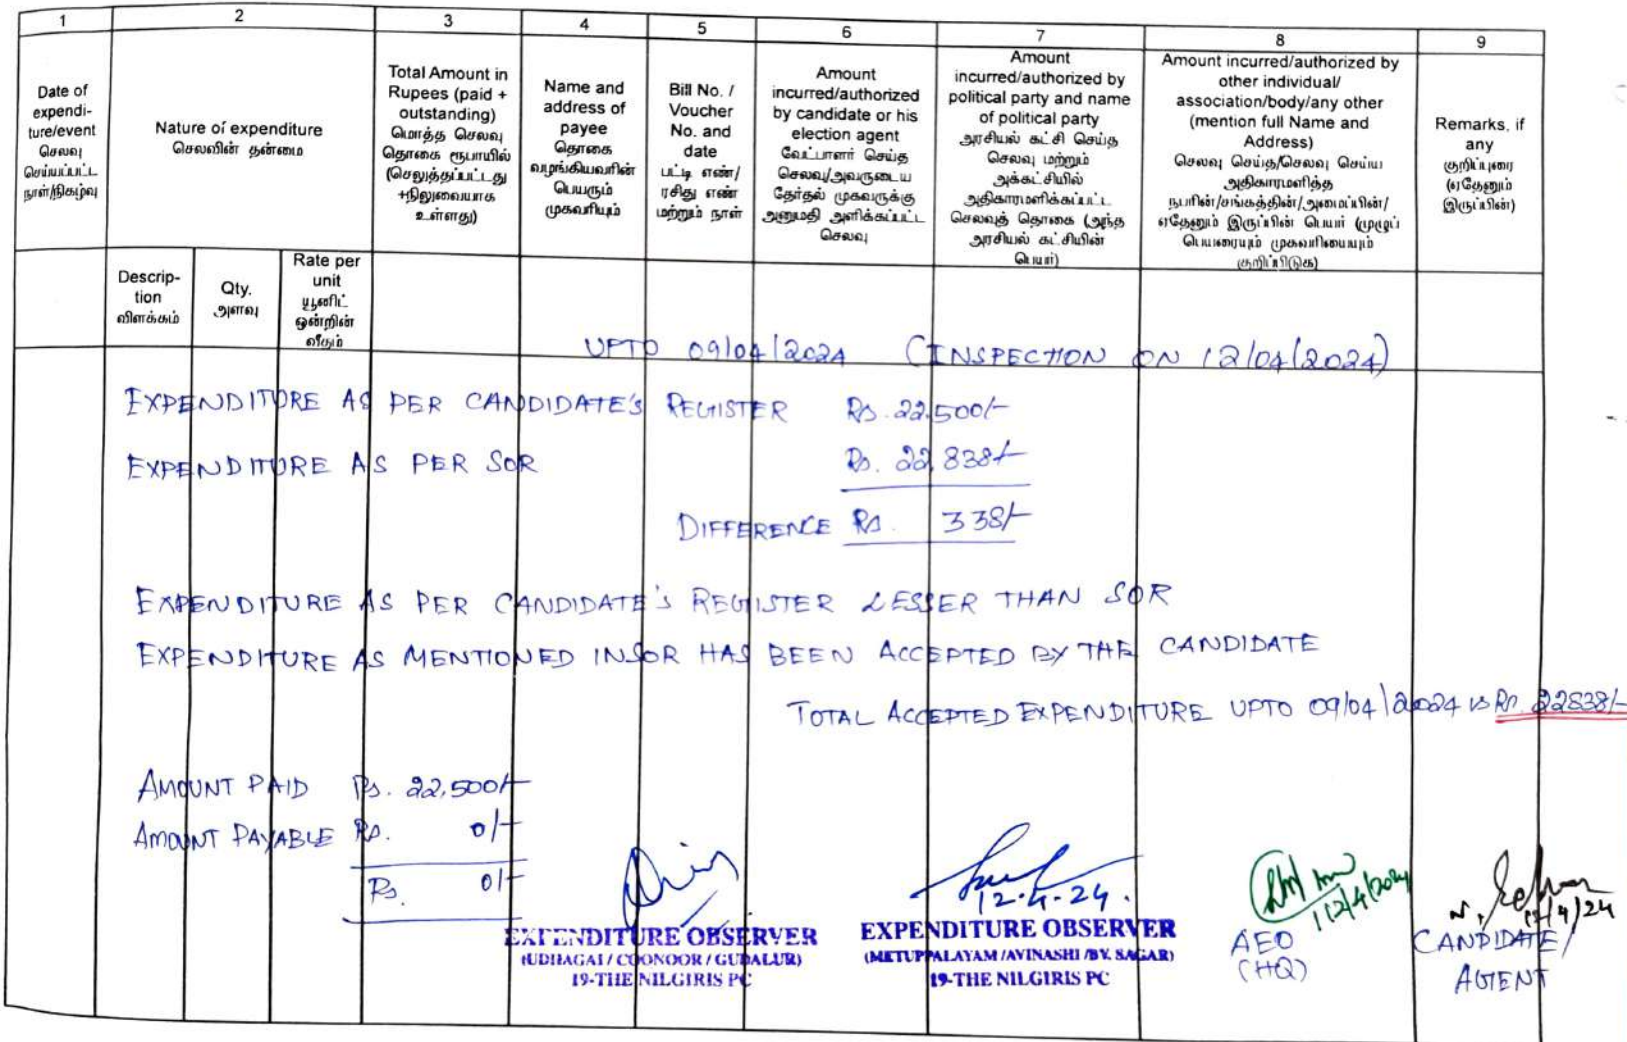 1
2
3
4
5
6
7
8
9
Date of
expendi-
ture/event
செலவு
செய்யப்பட்ட
நாள்/நிகழ்வு
Nature of expenditure
செலவின் தன்மை
Total Amount in
Rupees (paid +
outstanding)
மொத்த செலவு
தொகை ரூபாயில்
(செலுத்தப்பட்டது
+நிலுவையாக
உள்ளது)
Name and
address of
payee
தொகை
வழங்கியவரின்
பெயரும்
முகவரியும்
Bill No. /
Voucher
No. and
date
பட்டி எண்/
ரசிது எண்
மற்றும் நாள்
Amount
incurred/authorized
by candidate or his
election agent
வேட்பாளர் செய்த
செலவு/அவருடைய
தேர்தல் முகவருக்கு
அனுமதி அளிக்கப்பட்ட
செலவு
Amount
incurred/authorized by
political party and name
of political party
அரசியல் கட்சி செய்த
செலவு மற்றும்
அக்கட்சியில்
அதிகாரமளிக்கப்பட்ட
செலவுத் தொகை (அந்த
அரசியல் கட்சியின்
பெயர்)
Amount incurred/authorized by
other individual/
association/body/any other
(mention full Name and
Address)
செலவு செய்த/செலவு செய்ய
அதிகாரமளித்த
நபரின்/சங்கத்தின்/அமைப்பின்/
ஏதேனும் இருப்பின் பெயர் (முழுப்
பெயரையும் முகவரியையும்
குறிப்பிடுக)
Remarks, if
any
குறிப்புரை
(ஏதேனும்
இருப்பின்)
Descrip-
tion
விளக்கம்
Qty.
அளவு
Rate per
unit
யூனிட்
ஒன்றின்
வீதம்
UPTO 09/04/2024 (INSPECTION ON 12/04/2024)
EXPENDITURE AS PER CANDIDATE'S REGISTER Rs. 22,500/-
EXPENDITURE AS PER SOR Rs. 22,838/-
DIFFERENCE Rs. 338/-
EXPENDITURE AS PER CANDIDATE'S REGISTER LESSER THAN SOR
EXPENDITURE AS MENTIONED IN SOR HAS BEEN ACCEPTED BY THE CANDIDATE
TOTAL ACCEPTED EXPENDITURE UPTO 09/04/2024 is Rs. 22838/-
AMOUNT PAID Rs. 22,500/-
AMOUNT PAYABLE Rs. 0/-
Rs. 0/-
12.4.24.
12/4/2024
12/4/24
EXPENDITURE OBSERVER
(UDHAGAI / COONOOR / GUDALUR)
19-THE NILGIRIS PC
EXPENDITURE OBSERVER
(METUPPALAYAM /AVINASHI /BV. SAGAR)
19-THE NILGIRIS PC
AEO
(HQ)
CANDIDATE/
AGENT